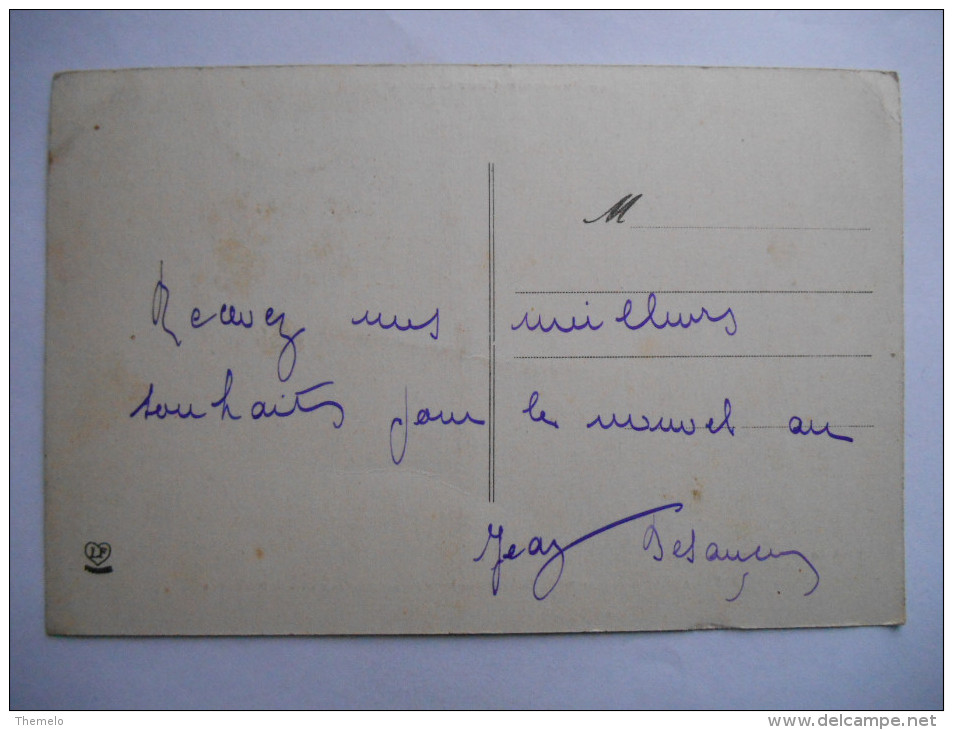 M
Recevez mes meilleurs
souhaits pour le nouvel an
Jean Besançon
LF
Themelo
www.delcampe.net